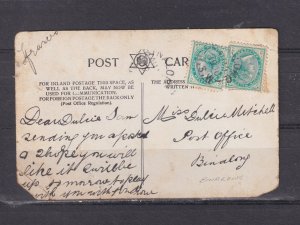 Francis
POST CARD
FOR INLAND POSTAGE THIS SPACE, AS
WELL AS THE BACK, MAY NOW BE
USED FOR COMMUNICATION.
FOR FOREIGN POSTAGE THE BACK ONLY
(Post Office Regulation).
THE ADDRESS
WRITTEN
Dear Dulcie I am
sending you a post
I hope you will
like it I will be
up tomorrow to play
with you with
Miss Dulcie Mitchell
Post Office
Binalong